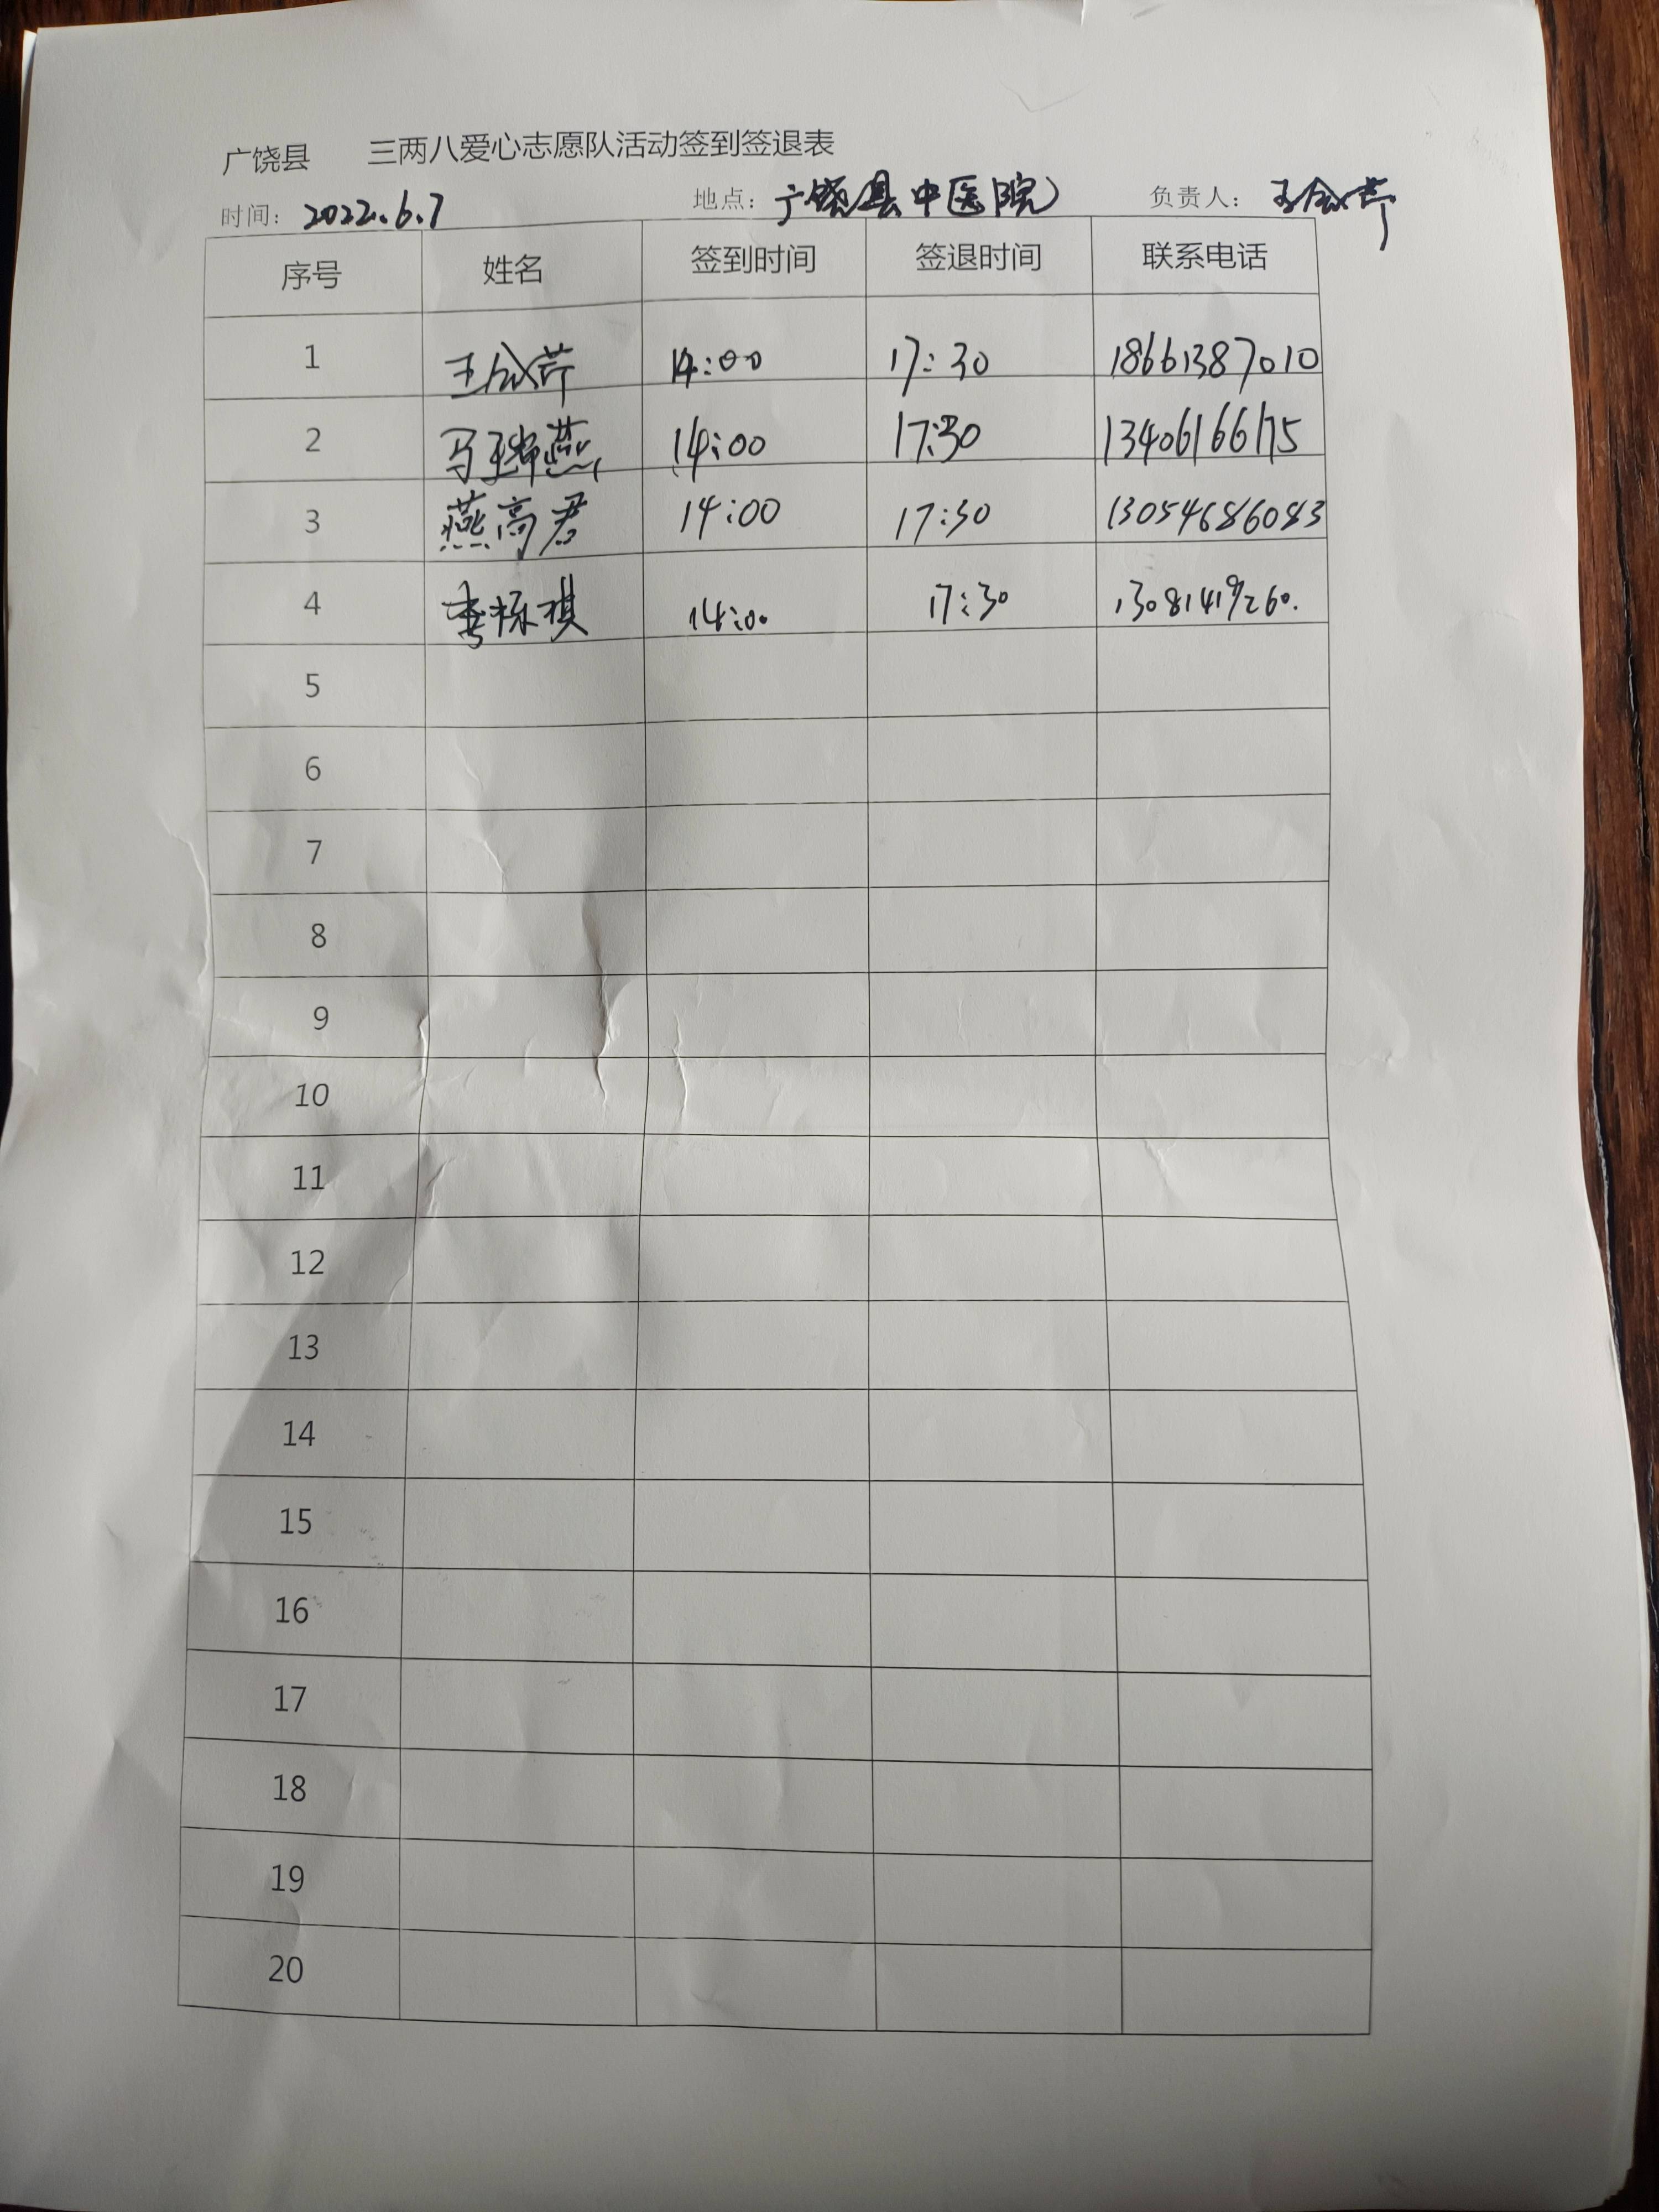 广饶县 三两八爱心志愿队活动签到签退表
时间: 2022.6.7 地点: 广饶县中医院 负责人: 王会芹
序号 姓名 签到时间 签退时间 联系电话
1 王会芹 14:00 17:30 18661387010
2 马瑞燕 14:00 17:30 13406166175
3 燕高君 14:00 17:30 13054686083
4 李栎祺 14:00 17:30 13081419260.
5
6
7
8
9
10
11
12
13
14
15
16
17
18
19
20